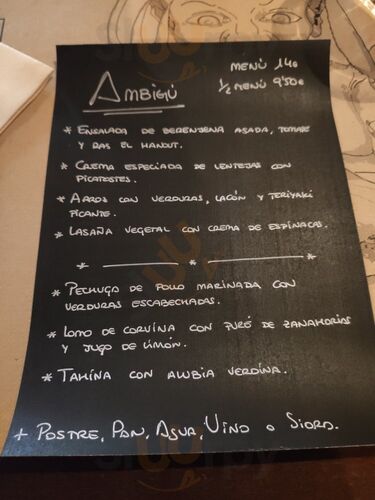 Ambigú
Menú 14€
1/2 Menú 9'50€
* Ensalada de berenjena asada, tomate
y ras el hanout.
* Crema especiada de lentejas con
picatostes.
* Arroz con verduras, lacón y teriyaki
picante.
* Lasaña vegetal con crema de espinacas.
* Pechuga de pollo marinada con
verduras escabechadas.
* Lomo de corvina con puré de zanahorias
y jugo de limón.
* Tahína con alubia verdina.
+ Postre, Pan, Agua, Vino o Sidra.